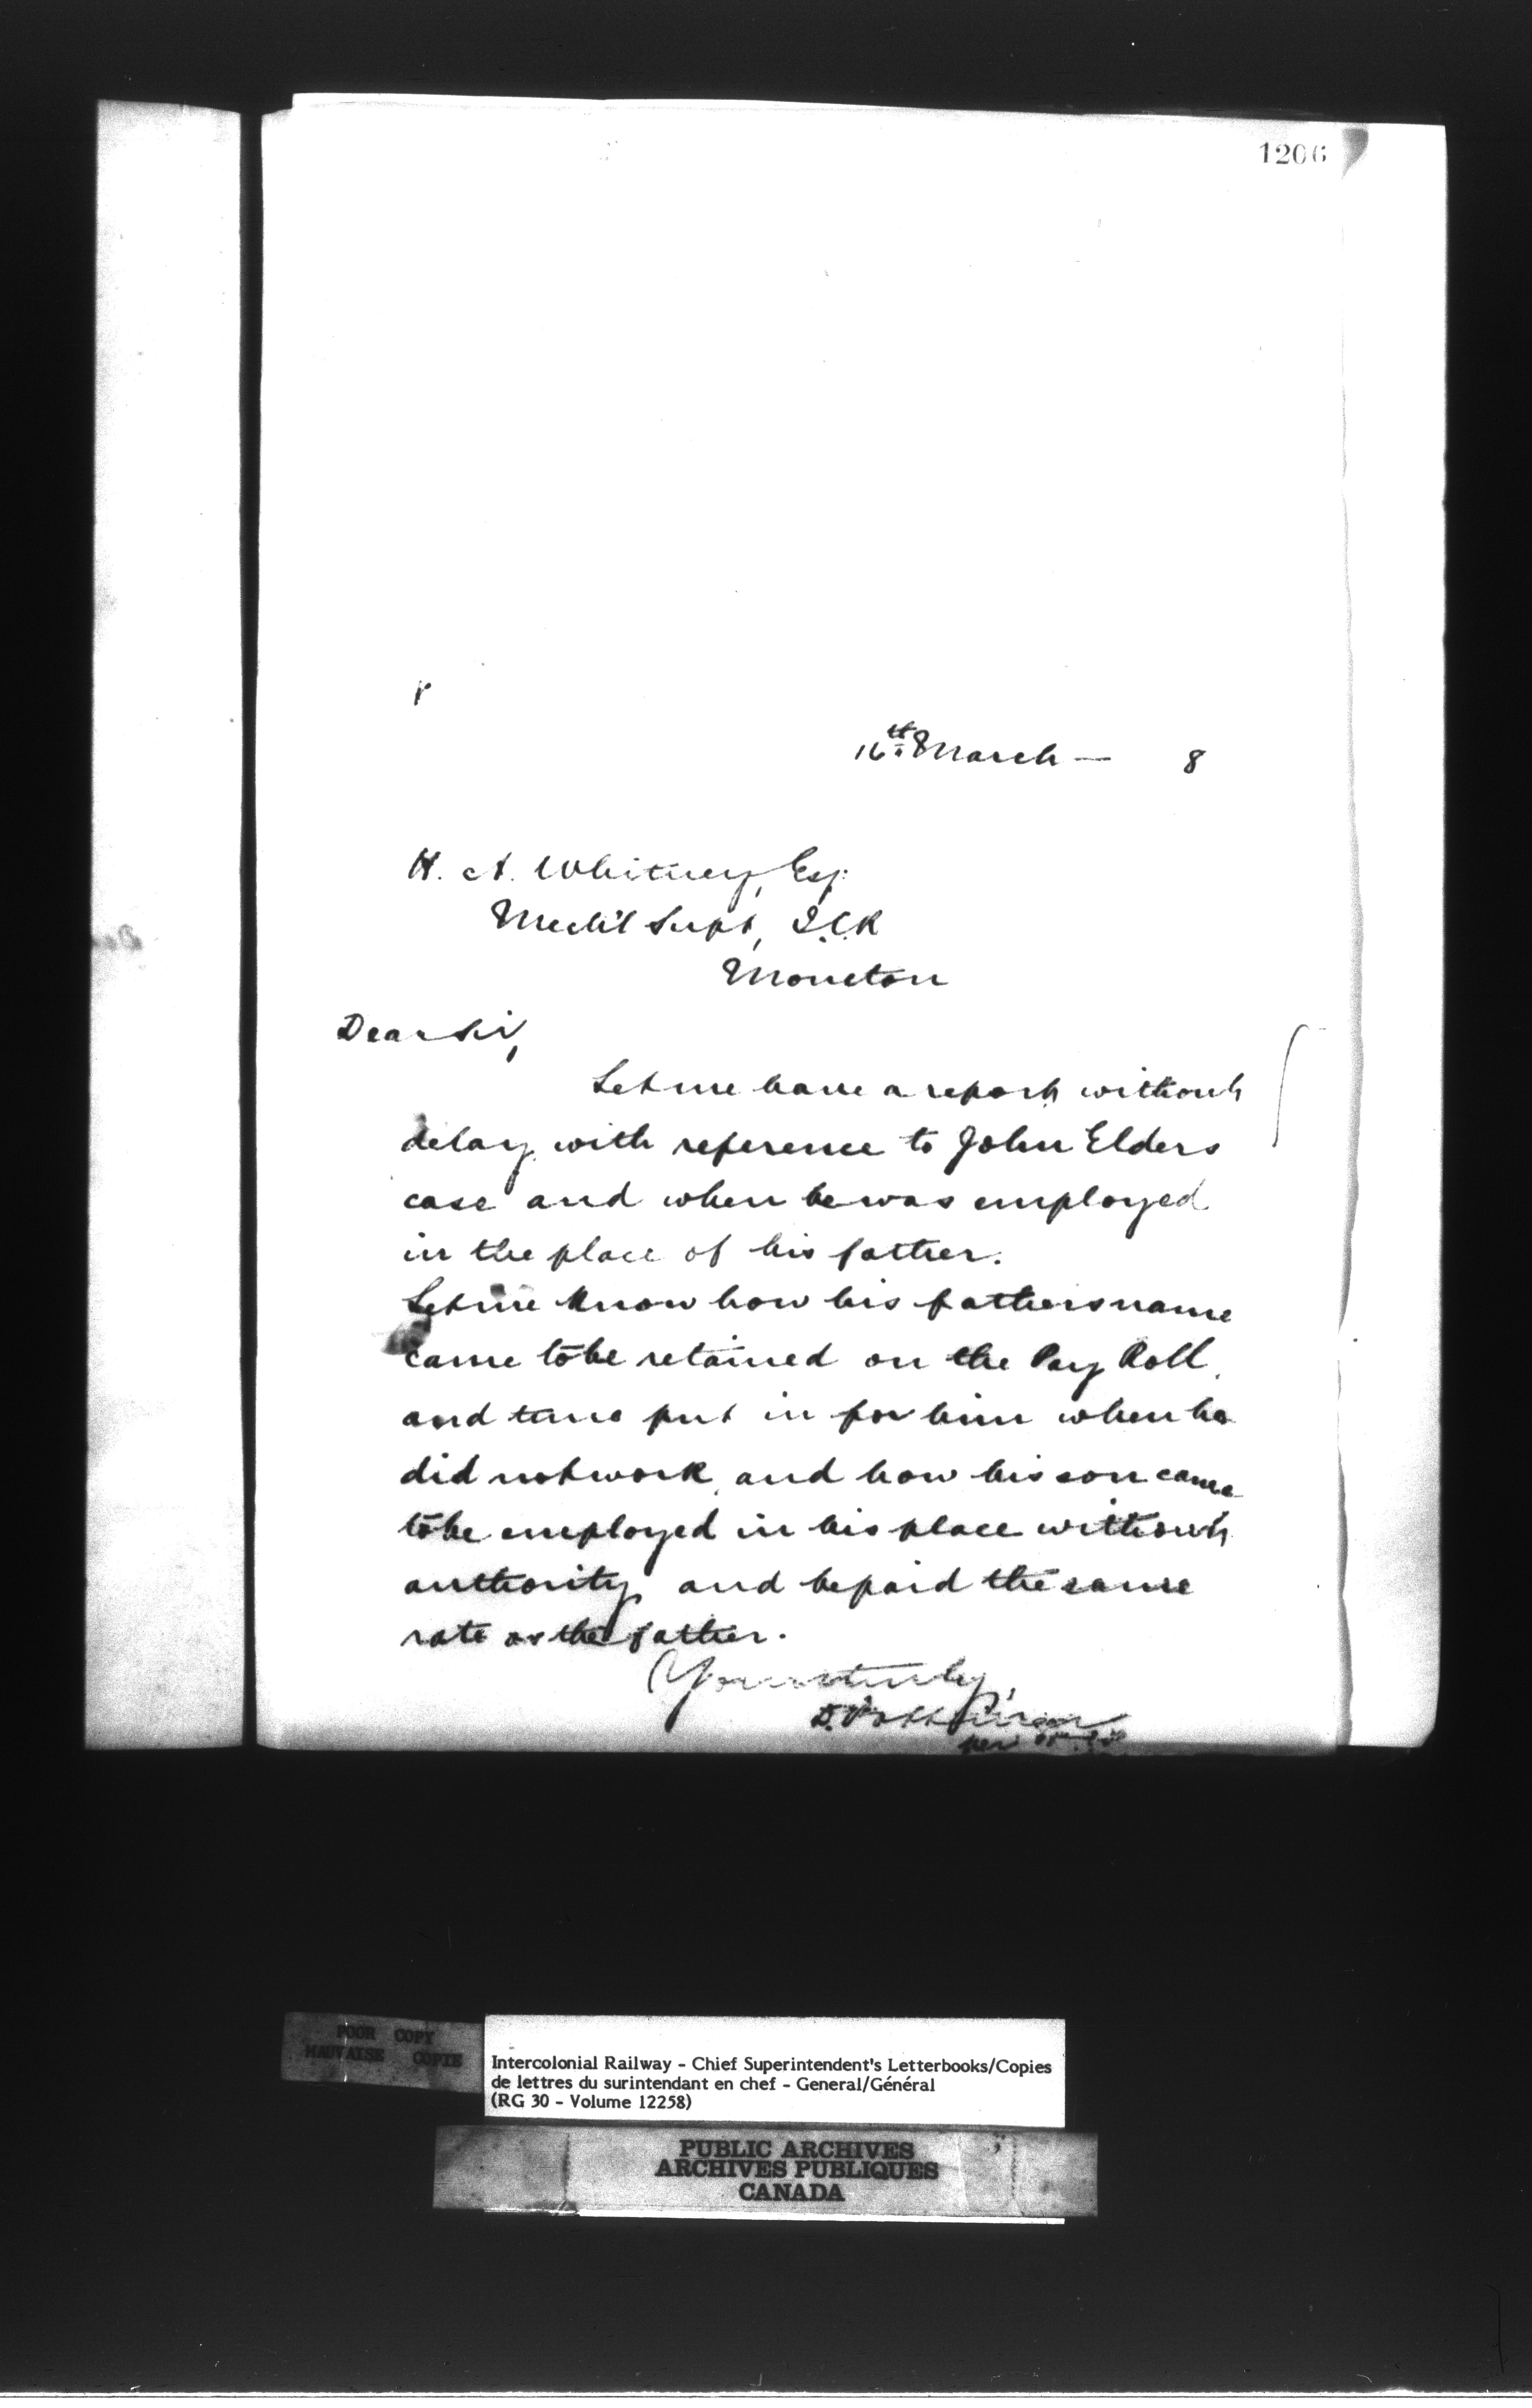 1206
16th March — 8
H. A. Whitney, Esq.
Mech'l Supt, I.C.R
Moncton
Dear Sir,
Let me have a report without
delay with reference to John Elders
case and when he was employed
in the place of his father.
Let me know how his fathers name
came to be retained on the Pay Roll,
and time put in for him when he
did not work, and how his son came
to be employed in his place without
authority and be paid the same
rate as the father.
Yours truly,
D. Pottinger
per
POOR COPY
MAUVAISE COPIE
Intercolonial Railway - Chief Superintendent's Letterbooks/Copies
de lettres du surintendant en chef - General/Général
(RG 30 - Volume 12258)
PUBLIC ARCHIVES
ARCHIVES PUBLIQUES
CANADA